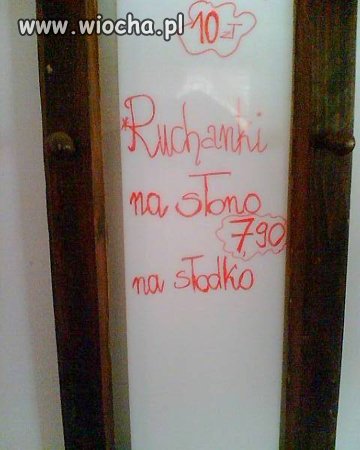 www.wiocha.pl
10 zł
*Ruchanki
na słono
7,90
na słodko